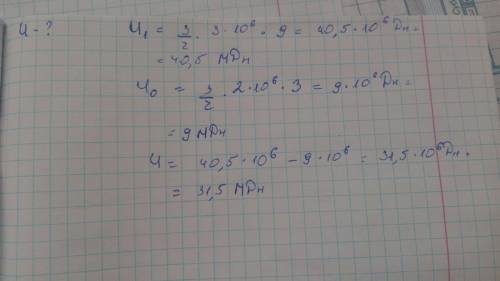 U - ?
U₁ = 3/2 · 3·10⁶ · 9 = 40,5·10⁶ Дж =
= 40,5 МДж
U₀ = 3/2 · 2·10⁶ · 3 = 9·10⁶ Дж =
= 9 МДж
U = 40,5·10⁶ - 9·10⁶ = 31,5·10⁶ Дж =
= 31,5 МДж